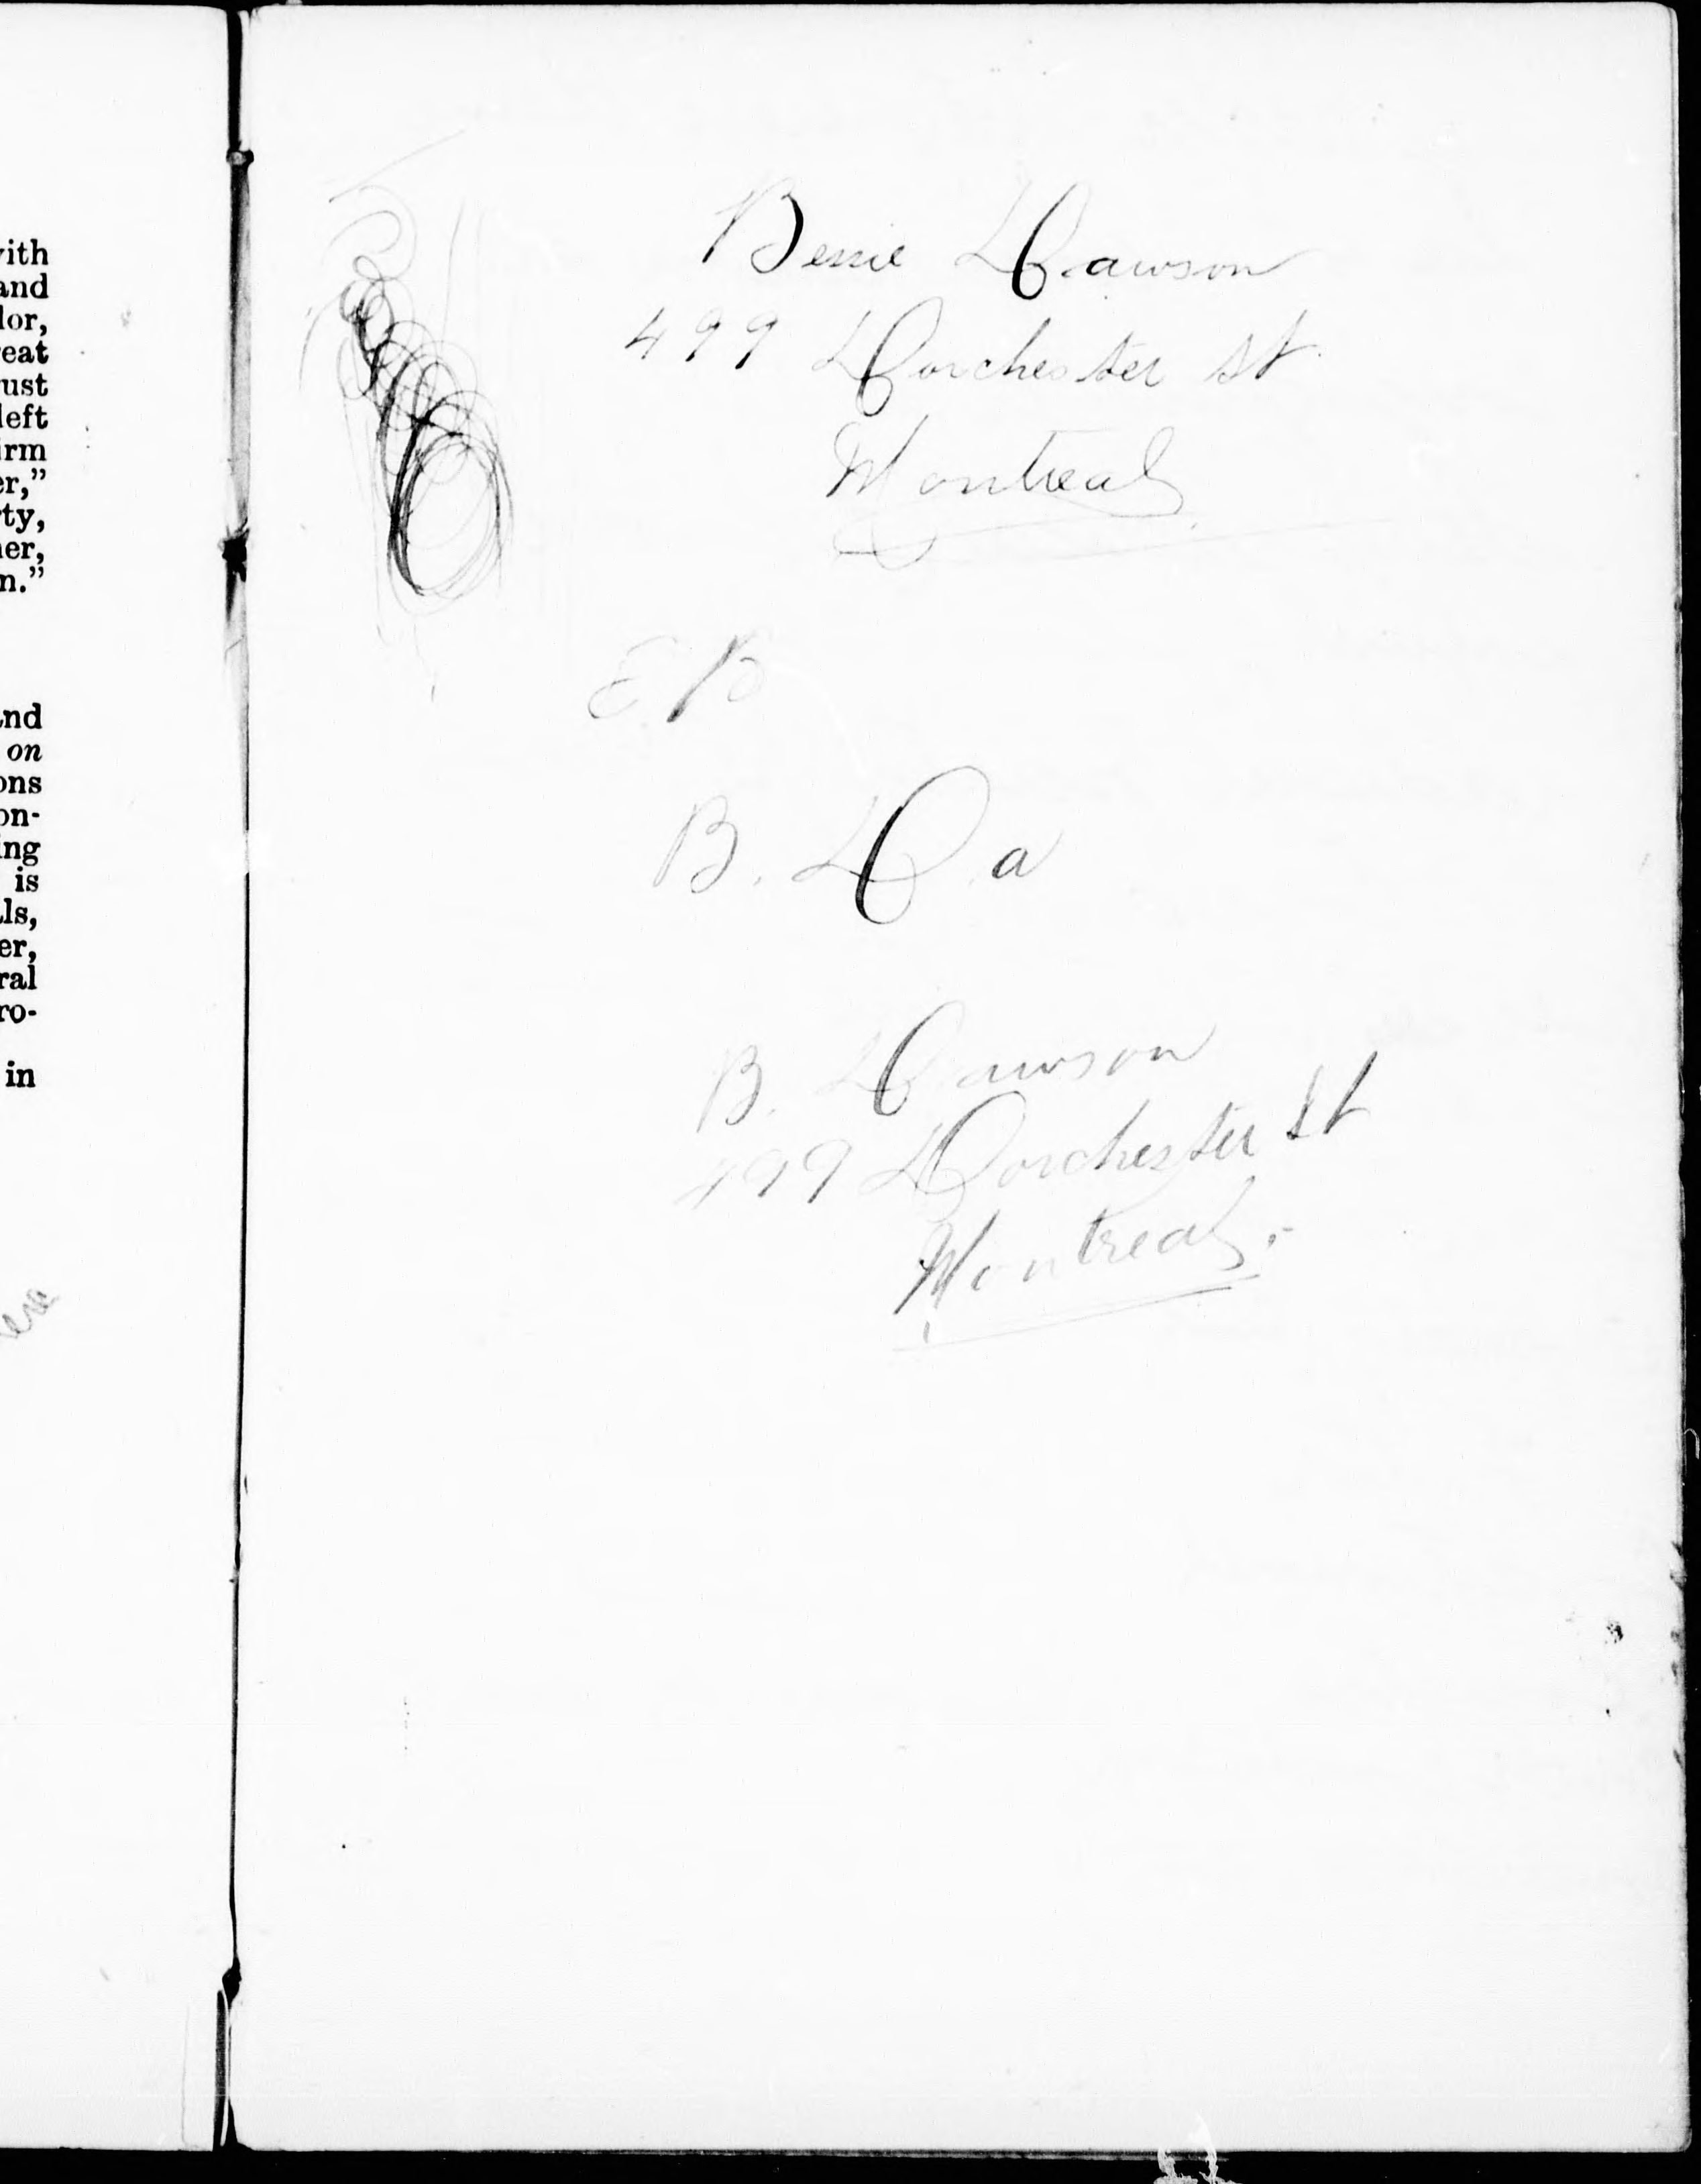 with
and
lor,
eat
ust
left
irm
er,”
ty,
er,
n.”
and
on
ons
on-
ing
is
ls,
er,
ral
ro-
in
Bessie Dawson
499 Dorchester St
Montreal
E. B
B. D a
B. Dawson
499 Dorchester St
Montreal.